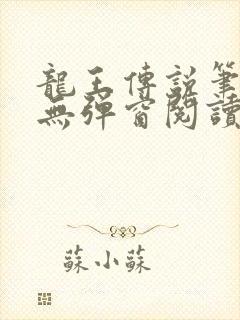 龍王傳說筆
無彈窗閱讀
蘇小蘇